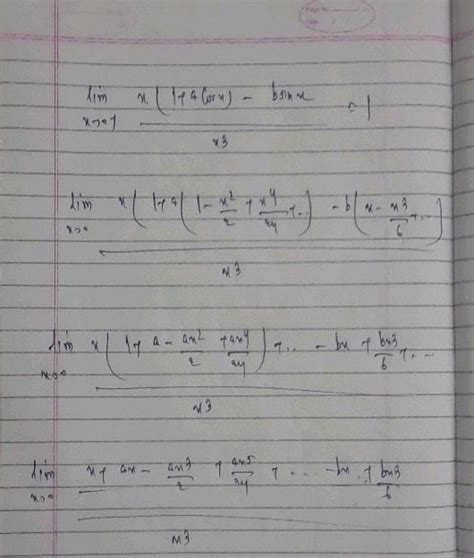 lim x(1+a cos x) - b sin x = 1
x→0 x3
lim x(1+a(1-x²/2+x⁴/24+..) -b(x-x3/6+..)
x→0 x3
lim x(1+a-ax²/2+ax⁴/24)+..-bx+bx3/6+..
x→0 x3
lim x+ax-ax3/2+ax5/24+...-bx+bx3/6
x→0 x3